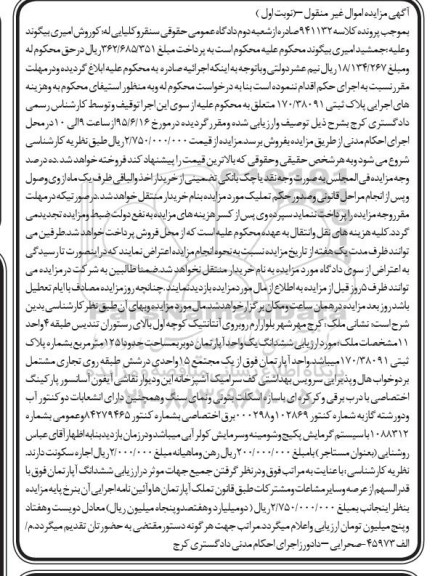 آگهی مزایده اموال غیر منقول –(نوبت اول )
بموجب پرونده کلاسه ۹۴۱۱۳۲صادره ازشعبه دوم دادگاه عمومی حقوقی سنقر و کلیایی له:کوروش امیری بیگوند
وعلیه:جمشید امیری بیگوند محکوم علیه محکوم است به پرداخت مبلغ ۳۶۲/۶۸۵/۳۵۱ریال در حق محکوم له
ومبلغ ۱۸/۱۳۴/۲۶۷ریال نیم عشر دولتی وباتوجه به اینکه اجرائیه صادره به محکوم علیه ابلاغ گردیده ودر مهلت
مقرر نسبت به اجرای حکم اقدام ننموده است بنا به درخواست محکوم له وبه منظور استیفای محکوم به وهزینه
های اجرایی پلاک ثبتی ۱۷۰/۳۸۰۹۱ متعلق به محکوم علیه از سوی این اجرا توقیف و توسط کارشناس رسمی
دادگستری کرج بشرح ذیل توصیف وارزیابی شده ومقرر گردیده در مورخ ۹۵/۶/۱۶از ساعت ۹الی ۱۰ در محل
اجرای احکام مدنی از طریق مزایده بفروش برسد.مزایده از قیمت ۲/۷۵۰/۰۰۰/۰۰۰ریال طبق نظریه کارشناسی
شروع می شود وبه هر شخص حقیقی وحقوقی که بالاترین قیمت را پیشنهاد کند فروخته خواهد شد.ده درصد
وجه مزایده فی المجلس به صورت وجه نقد یا چک بانکی تضمینی از خریدار اخذ والباقی ظرف یک ماه از وی وصول
وپس از انجام مراحل قانونی وصدور حکم تملیک مورد مزایده بنام خریدار منتقل خواهد شد.در صورتیکه در مهلت
مقرر وجه مزایده را پرداخت ننماید سپرده وی پس از کسر هزینه های مزایده به نفع دولت ضبط ومزایده تجدید می
گردد.کلیه هزینه های نقل وانتقال به عهده محکوم علیه است که از محل فروش پرداخت خواهد شد.طرفین می
توانند ظرف مدت یک هفته از تاریخ مزایده نسبت به نحوه انجام مزایده اعتراض نمایند که در اینصورت تا رسیدگی
به اعتراض از سوی دادگاه مورد مزایده به نام خریدار منتقل نخواهد شد.ضمنا طالبین به شرکت در مزایده می
توانند ظرف ۵روز قبل از مزایده به اطلاع از مال مورد مزایده بازدید نمایند.چنانچه روز مزایده مصادف با ایام تعطیل
باشد روز بعد مزایده در همان ساعت ومکان برگزار خواهد شد.مال مورد مزایده وبهای آن طبق نظر کارشناسی بدین
شرح است:نشانی ملک:کرج مهرشهر بلوار ارم روبروی آتلانتیک کوچه اول بالای رستوران تندیس طبقه ۴واحد
۱۱مشخصات ملک:مورد ارزیابی ششدانگ یک واحد آپارتمان دوبر بمساحت حدودا ۱۲۵متر مربع بشماره پلاک
ثبتی ۱۷۰/۳۸۰۹۱میباشد.واحد آپارتمان فوق از یک مجتمع ۱۵واحدی در شش طبقه روی تجاری مشتمل
بر دوخواب هال وپذیرایی سرویس بهداشتی کف سرامیک آشپزخانه اپن ودیوار نقاشی آیفون آسانسور پارکینگ
اختصاصی با درب برقی وکرکره ای باسازه اسکلت بتنی ونمای سنگ وهمچنین دارای انشعابات دو کنتور آب
ودورشته گاز به شماره کنتور ۱۰۲۸۶۹و۰۰۰۲۹۸برق اختصاصی بشماره کنتور ۸۴۲۷۹۴۶۵وعمومی بشماره
۱۰۸۸۳۱۲ باسیستم گرمایش پکیج وشومینه وسرمایش کولر آبی میباشد.ودر زمان بازدید بنا به اظهار آقای عباس
روشنایی (بعنوان مستاجر)بامبلغ ۲۰۰/۰۰۰/۰۰۰ریال رهن وماهیانه مبلغ ۲/۰۰۰/۰۰۰ریال اجاره سکونت دارند.
نظریه کارشناسی:با عنایت به مراتب فوق ودر نظر گرفتن جمیع جهات موثر در ارزیابی ششدانگ آپارتمان فوق با
قدرالسهم از عرصه وسایر مشاعات ومشترکات طبق قانون تملک آپارتمان ها وآئین نامه اجرایی آن بنرخ پایه مزایده
بنظر اینجانب بمبلغ ۲/۷۵۰/۰۰۰/۰۰۰ریال (دو میلیارد وهفتصد وپنجاه میلیون ریال)معادل دویست وهفتاد
وپنج میلیون تومان ارزیابی واعلام میگردد.مراتب جهت هر گونه دستور مقتضی به حضورتان تقدیم میگردد./م
الف ۴۵۹۷۳-صحرایی –دادورز اجرای احکام مدنی دادگستری کرج